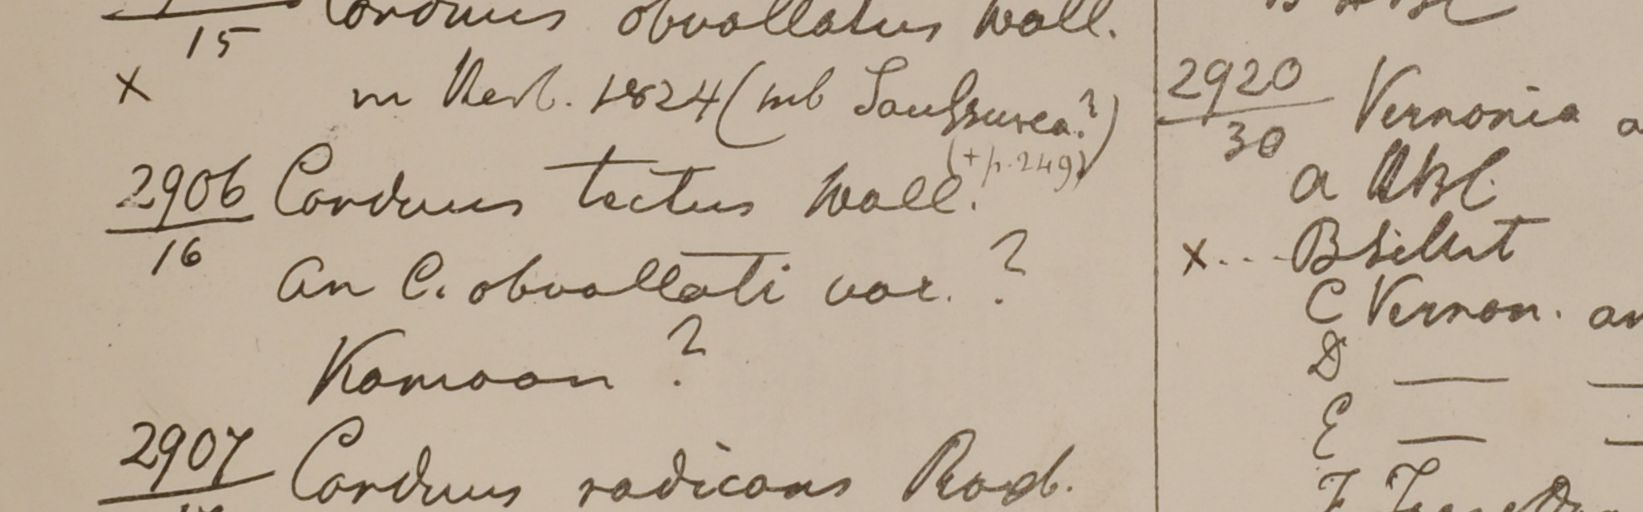 15 Carduus obvallatus Wall.
x in Herb. 1824 (mb Saussurea?)
(+ p. 249)
2906 Carduus tectus Wall.
16
an C. obvallati var. ?
Kamoon ?
2907 Carduus radicans Roxb.
2920 Vernonia
30
a HBC
x... B Silhet
C Vernon.
D — —
E — —
F